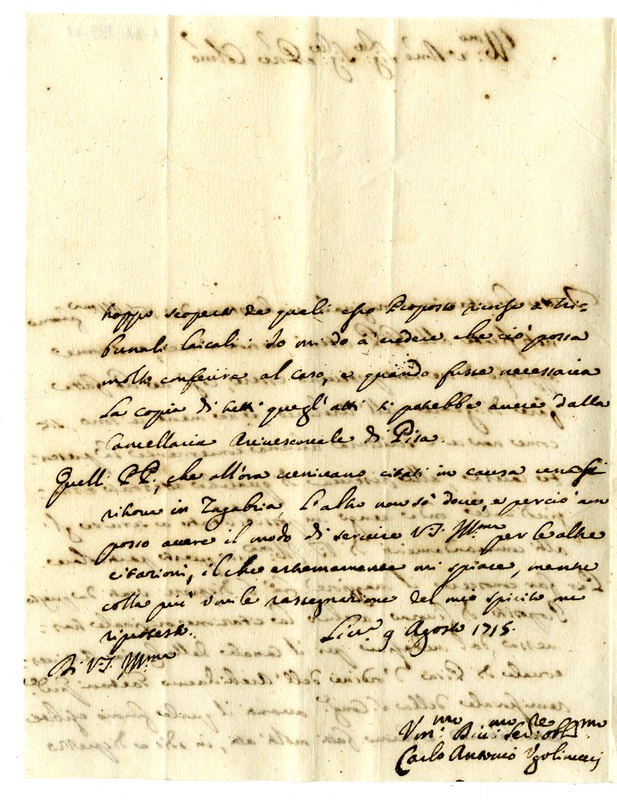 troppo scoperto da quali esso Proposto ricorse a Tri-
bunali laicali: Io mi do à credere che ciò possa
molto conferire al caso, e quando fusse necessaria
La copia di tutti quegl'atti si potrebbe avere dalla
Cancellaria Arcivescovale di Pisa.
Quelli PP, che all'ora venivano citati in causa uno si
ritrova in Zagabria, l'altro non sò dove, e perciò non
posso avere il modo di servire V.S. Ill.ma per le altre
citazioni, il che estremamente mi spiace, mentre
colla più umile rassegnazione del mio spirito mi
riprotesto. Liv.o 9 Agosto 1715.
Di V.S. Ill.ma
Um.mo Ser. obl.mo
Carlo Antonio Ugolinucci